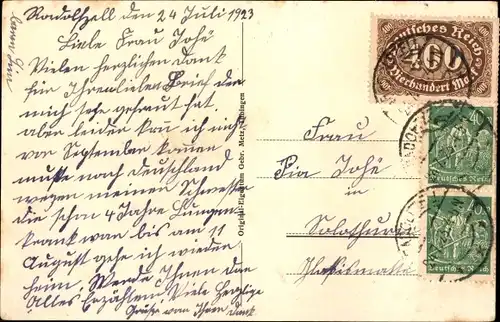 Radolfzell den 24 Juli 1923
Liebe Frau Johé
Vielen herzlichen Dank
für Ihren lieben Brief der
mich sehr gefreut hat,
aber leider kan ich nicht
vor September kommen
mußte nach Deutschland
wegen meinen Schwester
die schon 4 Jahre Lungen
krank war bis am 11
August gehe ich wieder
heim, Werde Ihnen den
Alles Erzählen, Viele Herzlige
Grüße von Ihrem dank
Original-Eigentum Gebr. Metz, Tübingen
Frau
Pia Johé
in
Solothurn
Deutsches Reich
400
Vierhundert Mark
40
Deutsches Reich
Deutsches Reich